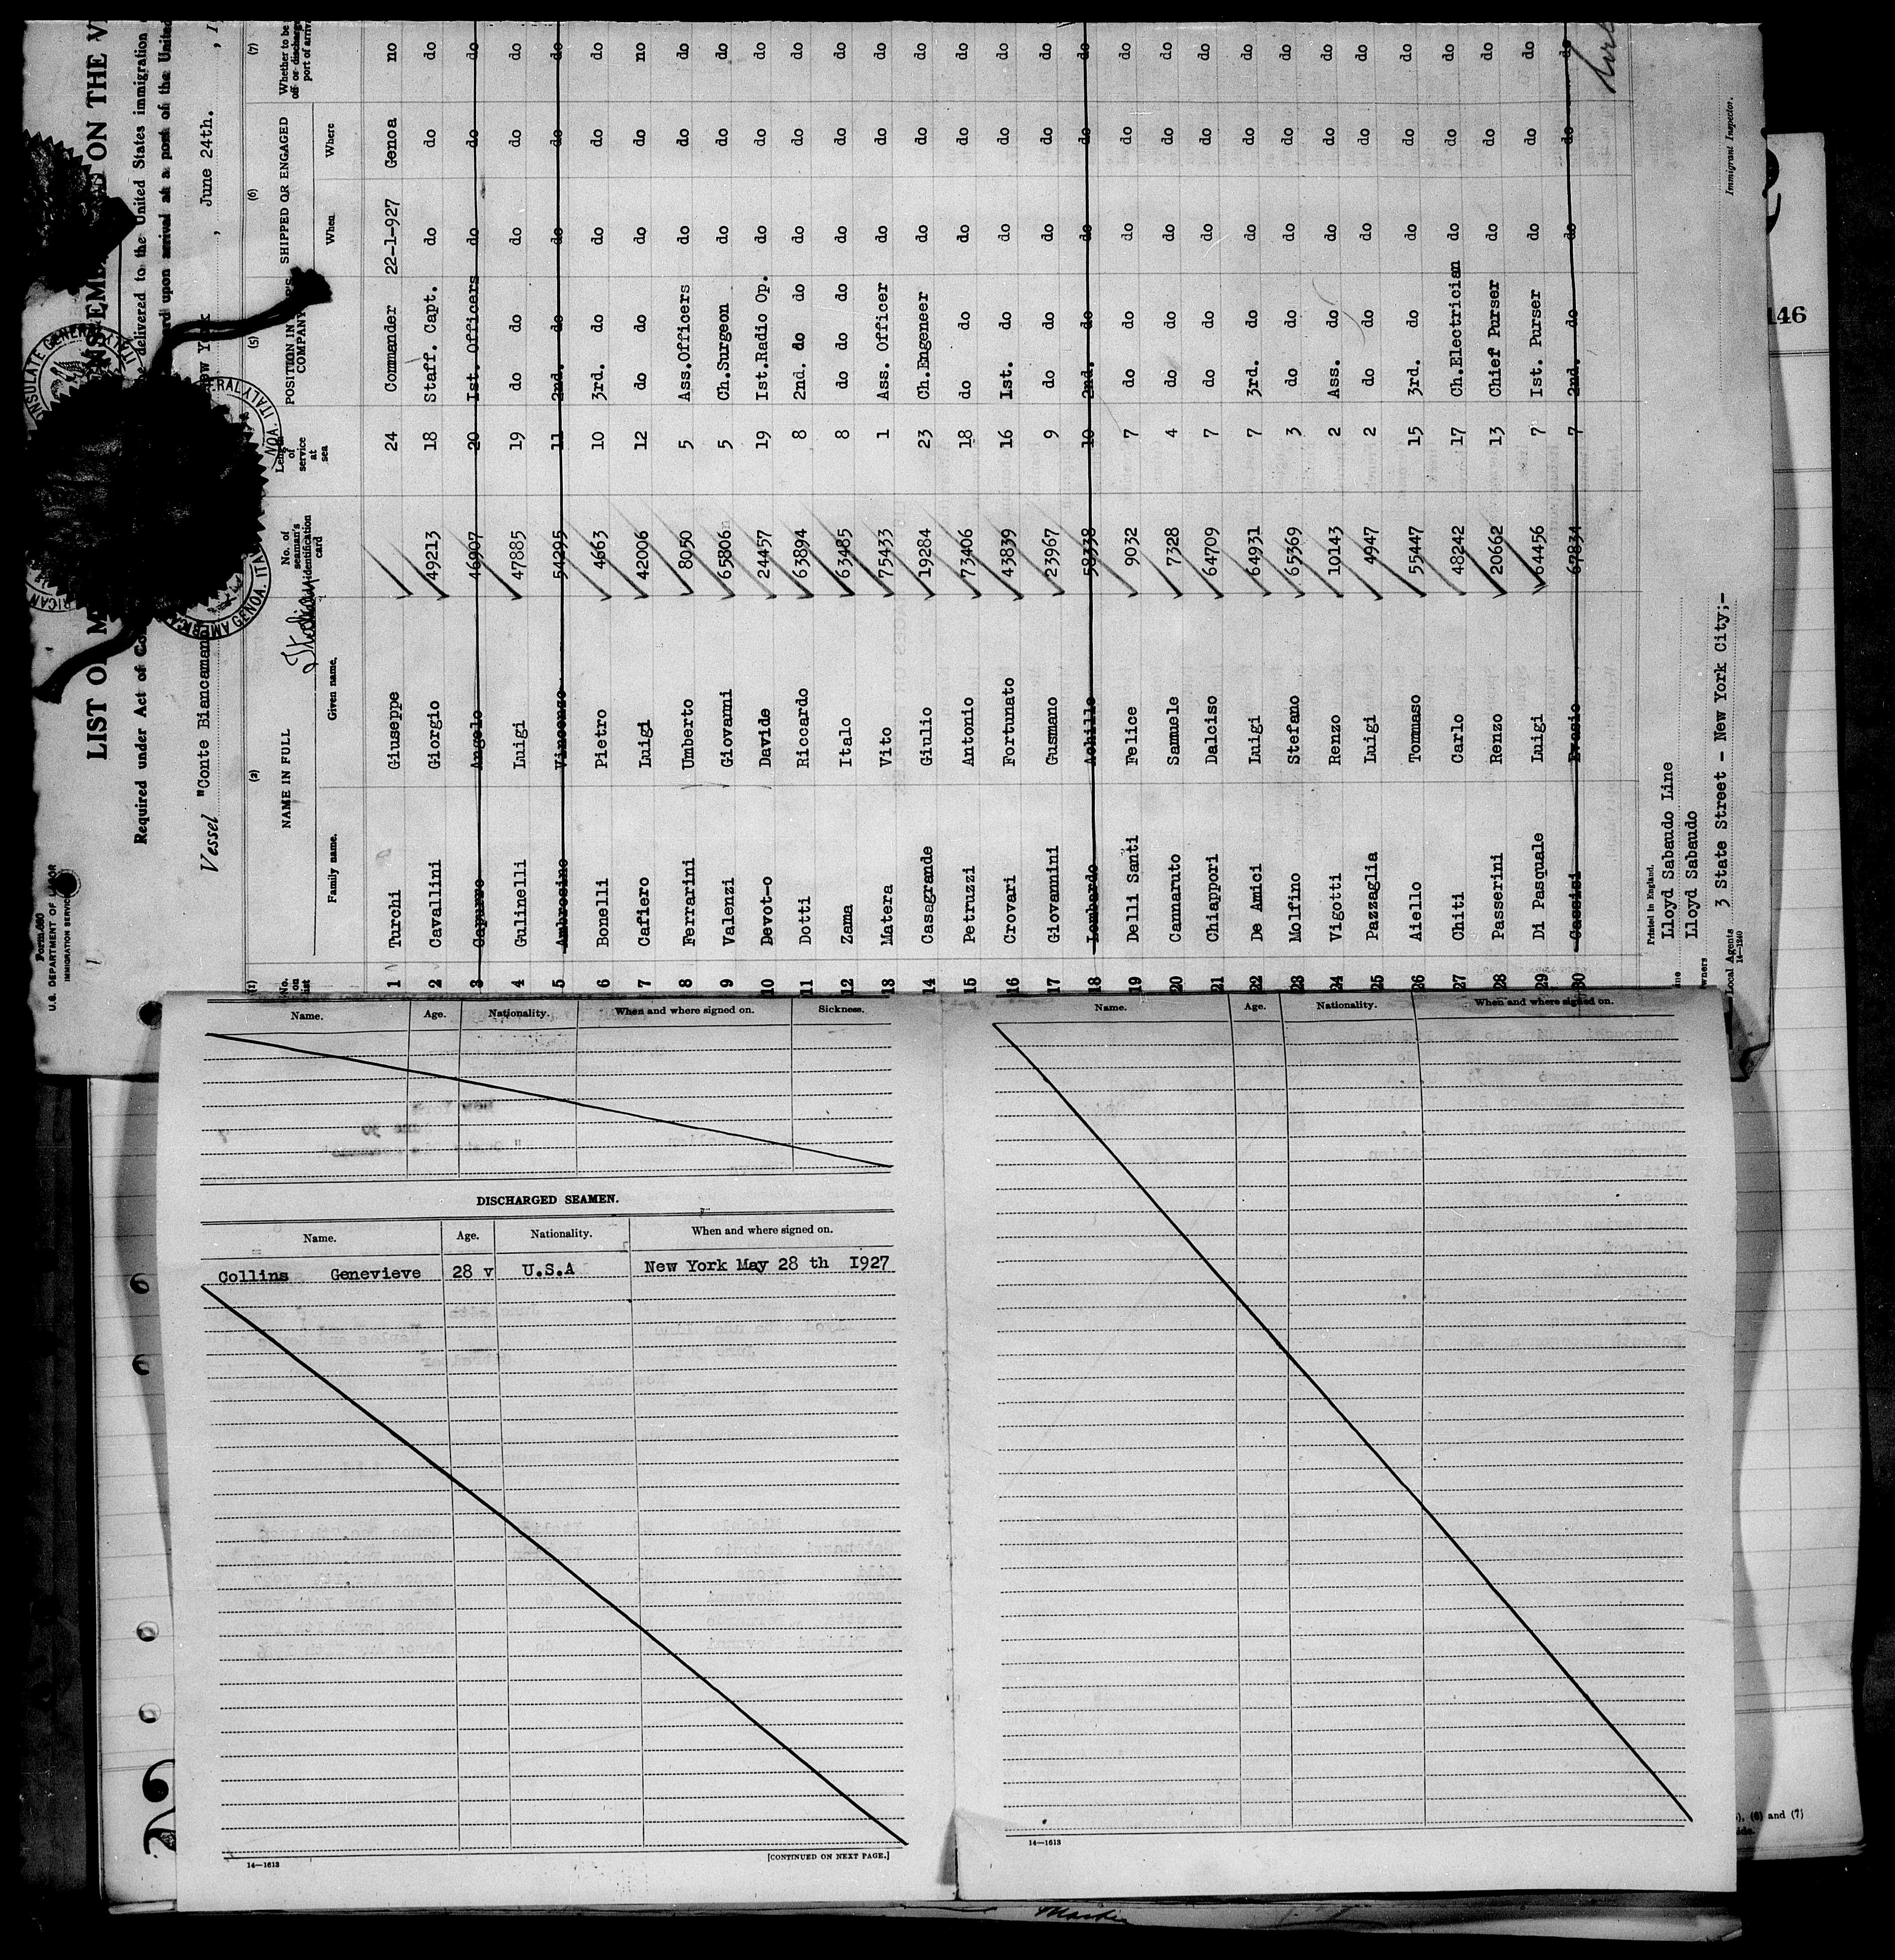 Form 680
U.S. DEPARTMENT OF LABOR
IMMIGRATION SERVICE
LIST O ON THE V
Required under Act of Co delivered to the United States immigration
ard upon arrival at a port of the United
Vessel "Conte Biancaman ew York , June 24th. , 1
(1) (2) (5) (6) (7)
No. on list NAME IN FULL No. of seaman's identification card Length of service at sea POSITION IN COMPANY SHIPPED OR ENGAGED Whether to be off or discharg port of arriv
Family name. Given name. When Where
1 Turchi Giuseppe 24 Commander 22-1-927 Genoa no
2 Cavallini Giorgio 49213 18 Staff. Capt. do do do
3 Capurro Angelo 46907 20 Ist. Officers do do do
4 Gulinelli Luigi 47885 19 do do do do do
5 Ambrosino Vincenzo 54295 11 2nd. do do do do
6 Bonelli Pietro 4663 10 3rd. do do do do
7 Cafiero Luigi 42006 12 do do do do no
8 Ferrarini Umberto 8050 5 Ass.Officers do do do
9 Valenzi Giovanni 65806 5 Ch.Surgeon do do do
10 Devoto-o Davide 24457 19 Ist.Radio Op. do do do
11 Dotti Riccardo 63894 8 2nd. do do do do do
12 Zama Italo 63485 8 do do do do do do
13 Matera Vito 75433 1 Ass. Officer do do do
14 Casagrande Giulio 19284 23 Ch.Engeneer do do do
15 Petruzzi Antonio 73406 18 do do do do do
16 Crovari Fortunato 43839 16 1st. do do do do
17 Giovannini Gusmano 23967 9 do do do do do
18 Lombardo Achille 58338 10 2nd. do do do do
19 Delli Santi Felice 9032 7 do do do do do
20 Cannaruto Samuele 7328 4 do do do do do
21 Chiappori Dalciso 64709 7 do do do do do
22 De Amici Luigi 64931 7 3rd. do do do do
23 Molfino Stefano 65369 3 do do do do do
24 Vigotti Renzo 10143 2 Ass. do do do do
25 Pazzaglia Luigi 4947 2 do do do do do
26 Aiello Tommaso 55447 15 3rd. do do do do
27 Chiti Carlo 48242 17 Ch.Electrician do do do
28 Passerini Renzo 20662 13 Chief Purser do do do
29 Di Pasquale Luigi 64456 7 Ist. Purser do do do
30 Cassisi Evasio 67834 7 2nd. do do do do
Printed in England.
Lloyd Sabaudo Line
wners Lloyd Sabaudo
Local Agents 3 State Street - New York City;-
14—1240
Immigrant Inspector.
146
Name. Age. Nationality. When and where signed on. Sickness.
DISCHARGED SEAMEN.
Name. Age. Nationality. When and where signed on.
Collins Genevieve 28 v U.S.A New York May 28 th 1927
14—1613
[CONTINUED ON NEXT PAGE.]
Name. Age. Nationality. When and where signed on.
14—1613
), (6) and (7)
Master